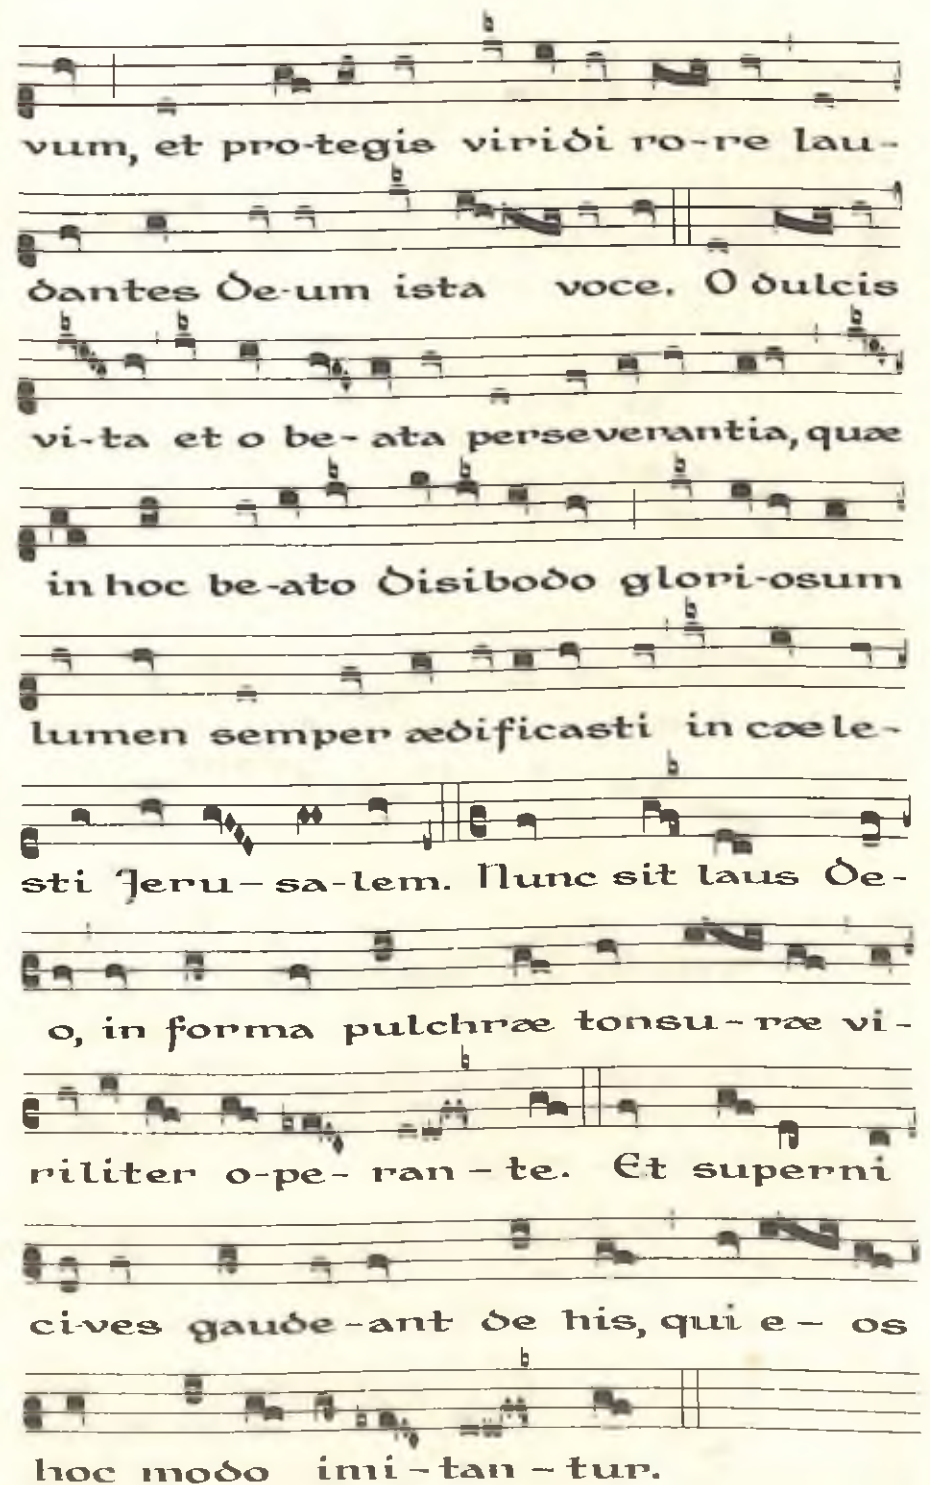 vum, et pro-tegis viridi ro-re lau-
dantes De-um ista voce. O dulcis
vi-ta et o be-ata perseverantia, quæ
in hoc be-ato Disibodo glori-osum
lumen semper ædificasti in cæle-
sti Jeru-sa-lem. Nunc sit laus De-
o, in forma pulchræ tonsu-ræ vi-
riliter o-pe-ran-te. Et superni
cives gaude-ant de his, qui e-os
hoc modo imi-tan-tur.